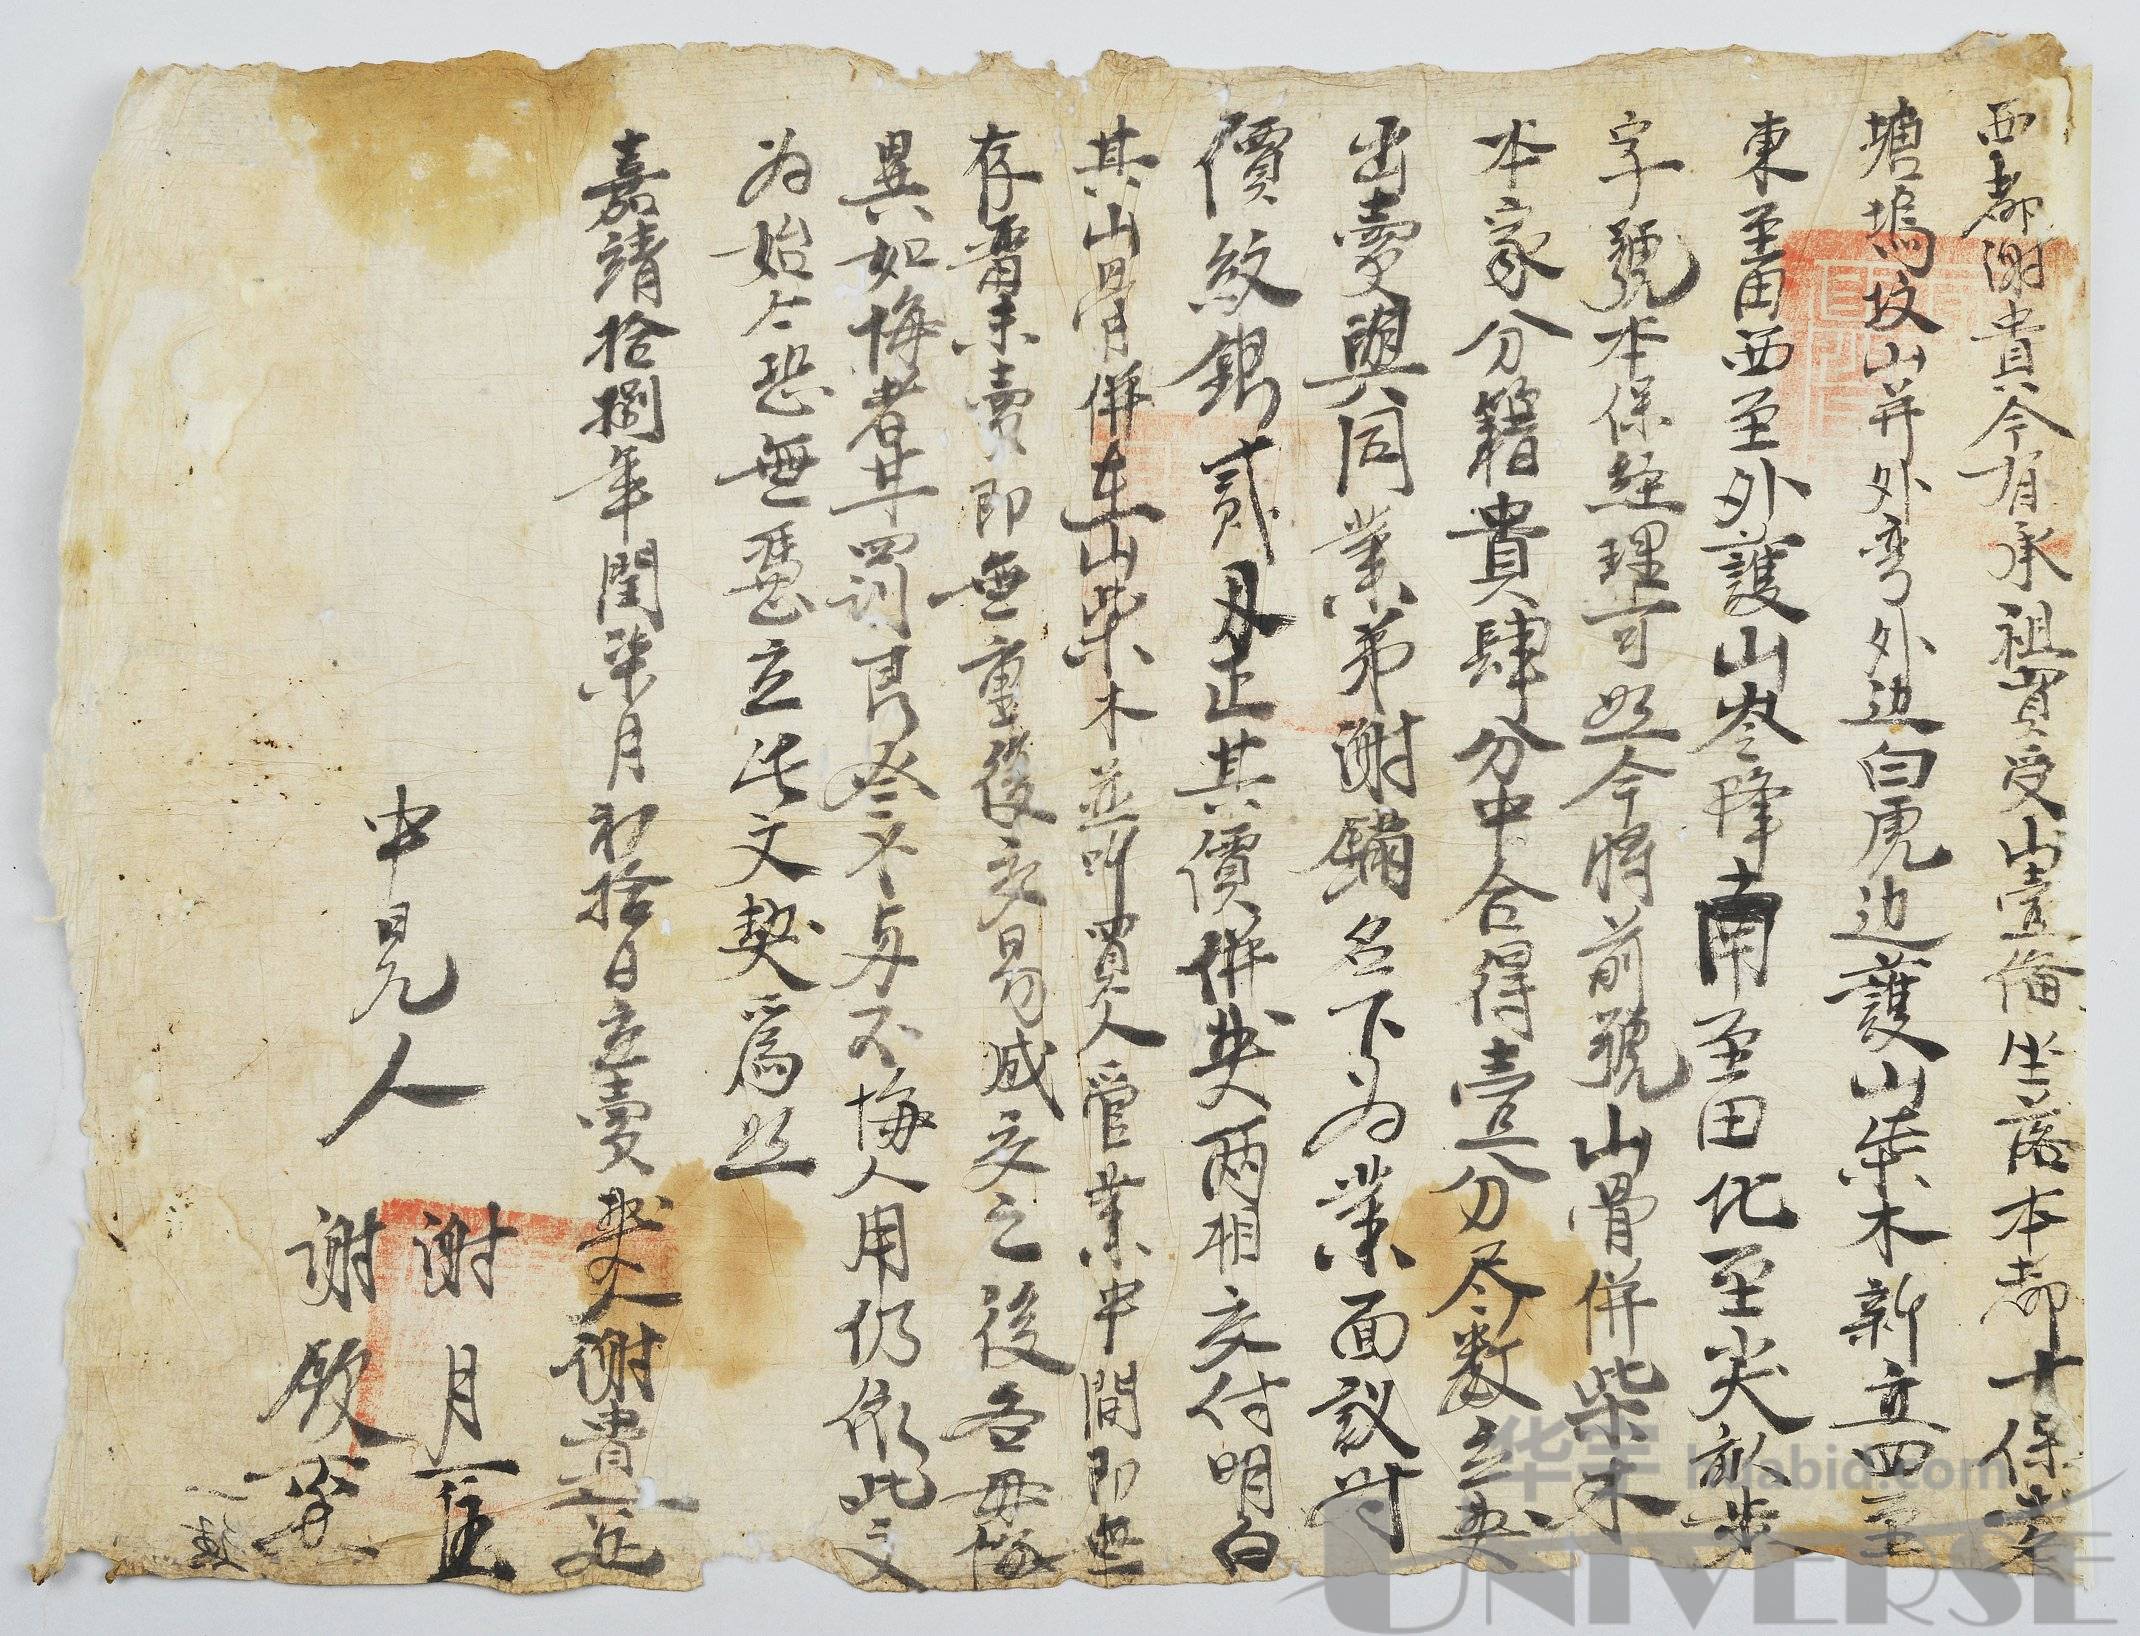 西都謝貴今有承祖買受山壹備坐落本都十保考
塘塢坟山并外弯外边白虎边護山柴木新立四至
東至田西至外護山岺降南至田北至尖畝步
字號本保經理可照今將前號山骨併柴木
本家分籍貴肆分中合得壹分尽数立契
出賣與同業弟謝鏽名下为業面議时
價紋銀貳 正其價併契兩相交付明白
其山骨併在山柴木並听買人管業中間即無
存畱未賣即無重復交易成交之後各毋悔
異如悔者甘罰 不悔人用仍依此文
为始今恐無憑立此文契爲照
嘉靖拾捌年閏柒月初拾日立賣契人謝貴
中見人 謝月
謝